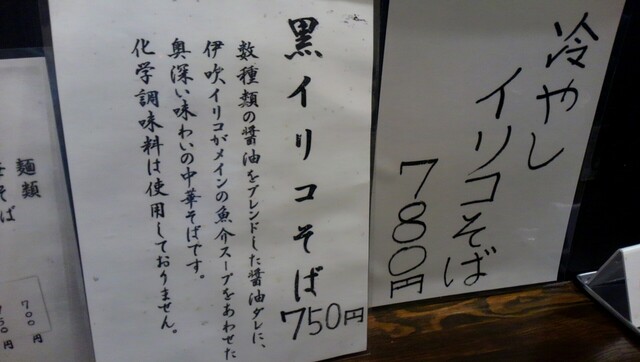 冷やし
イリコそば
780円
黒イリコそば
750円
数種類の醤油をブレンドした醤油ダレに、
伊吹イリコがメインの魚介スープをあわせた
奥深い味わいの中華そばです。
化学調味料は使用しておりません。
麺類
そば
700円